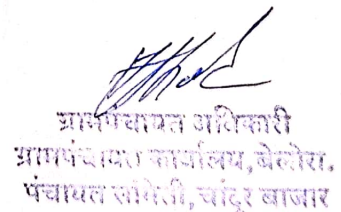 ग्रामपंचायत अधिकारी
ग्रामपंचायत कार्यालय, बेलोरा.
पंचायत समिती, चांदूर बाजार